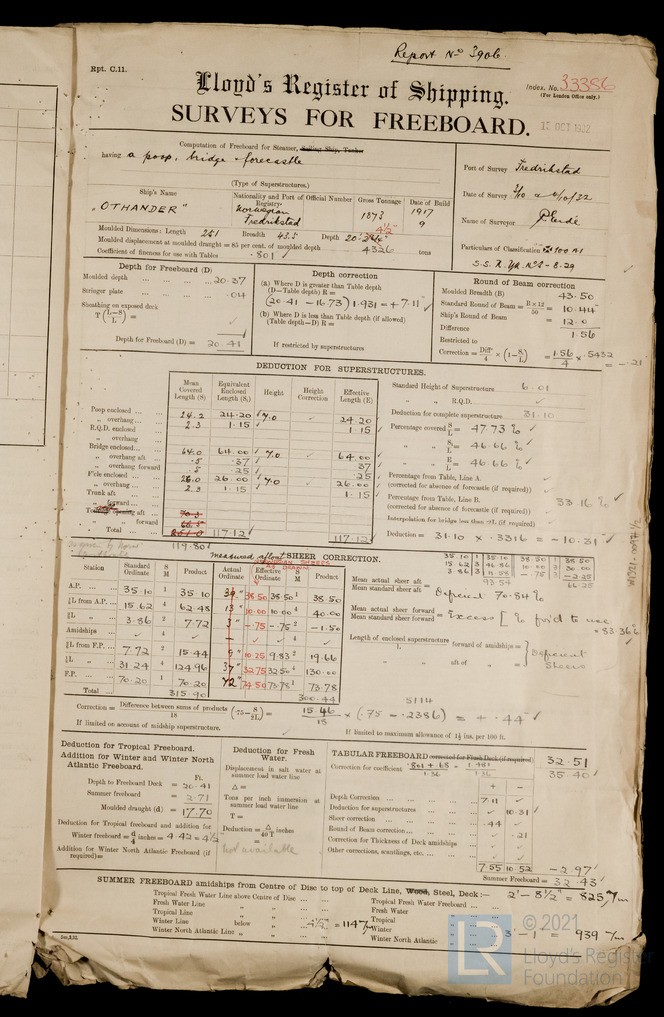 Report No 3906
Rpt. C.11.
Lloyd's Register of Shipping.
Index. No. 33386
(For London Office only.)
SURVEYS FOR FREEBOARD.
OCT 1932
Computation of Freeboard for Steamer, Sailing Ship, Tanker
having a poop, bridge forecastle
(Type of Superstructures.)
Port of Survey Fredrikstad
Date of Survey
Name of Surveyor
Particulars of Classification 100 A1
Ship's Name
Nationality and Port of Official Number
Registry
Gross Tonnage
Date of Build
"OTHANDER"
Norwegian
Fredrikstad
1873
1917
9
Moulded Dimensions: Length 241 Breadth 43.5 Depth 20'
Moulded displacement at moulded draught = 85 per cent. of moulded depth 4326 tons
Coefficient of fineness for use with Tables ·801
Depth for Freeboard (D)
Moulded depth 20·37
Stringer plate ·04
Sheathing on exposed deck
T (L-S/L) =
Depth for Freeboard (D) = 20.41
Depth correction
(a) Where D is greater than Table depth
(D—Table depth) R =
(20·41 - 16.73) 1.931 = +7.11
(b) Where D is less than Table depth (if allowed)
(Table depth—D) R =
If restricted by superstructures
Round of Beam correction
Moulded Breadth (B) 43.50
Standard Round of Beam = B×12/50 = 10.44
Ship's Round of Beam = 12.0
Difference 1.56
Restricted to
Correction = Diff/4 × (1 - S/L) = 1.56/4 × .5432 = -.21
DEDUCTION FOR SUPERSTRUCTURES.
Mean Covered Length (S)
Equivalent Enclosed Length (S₁)
Height
Height Correction
Effective Length (E)
Poop enclosed 24.2 24.20 7.0 24.20
" overhang 2.3 1.15 1.15
R.Q.D. enclosed
" overhang
Bridge enclosed 64.0 64.00 7.0 64.00
" overhang aft .5 .37 37
" overhang forward .5 .25 .25
F'cle enclosed 26.0 26.00 7.0 26.00
" overhang 2.3 1.15 1.15
Trunk aft
" forward
" forward
" Total 117.12 117.12
119.80
Standard Height of Superstructure 6.01
" " R.Q.D.
Deduction for complete superstructure 31.10
Percentage covered S/L 47.73 %
" " S₁/L = 46.66 %
" " E/L = 46.66 %
Percentage from Table, Line A.
(corrected for absence of forecastle (if required))
Percentage from Table, Line B. 33.16 %
(corrected for absence of forecastle (if required))
Interpolation for bridge less than .2L (if required)
Deduction = 31.10 × .3316 = -10.31
measured afloat SHEER CORRECTION.
Station
Standard Ordinate
S M
Product
Actual Ordinate
Effective Ordinate
S M
Product
A.P. 35.10 1 35.10 39" 38.50 38.50 1 38.50
⅙L from A.P. 15.62 4 62.48 13" 10.00 10.00 4 40.00
⅓L " 3.86 2 7.72 3" -.75 -.75 2 -1.50
Amidships 4 4
⅓L from F.P. 7.72 2 15.44 9" 10.25 9.83 2 19.66
⅙L " 31.24 4 124.96 37" 32.75 32.50 4 130.00
F.P. 70.20 1 70.20 72" 74.50 73.78 1 73.78
Total 315.90 300.44
Mean actual sheer aft
Mean standard sheer aft = Deficient 70.84%
Mean actual sheer forward
Mean standard sheer forward = Excess
Length of enclosed superstructure L forward of amidships =
" " aft of " =
Deficient Sheers
Correction = Difference between sums of products/18 (·75 - S/2L) = 15.46/18 × (.75 - .2386) = + .44
If limited on account of midship superstructure.
If limited to maximum allowance of 1½ ins. per 100 ft.
Deduction for Tropical Freeboard.
Addition for Winter and Winter North Atlantic Freeboard.
Ft.
Depth to Freeboard Deck = 20.41
Summer freeboard = 2.71
Moulded draught (d) = 17.70
Deduction for Tropical freeboard and addition for
Winter freeboard = d/4 inches = 4.42 = 4½
Addition for Winter North Atlantic Freeboard (if required) =
Deduction for Fresh Water.
Displacement in salt water at summer load water line
Δ =
Tons per inch immersion at summer load water line
T =
Deduction = Δ/40 T inches
=
Not available
TABULAR FREEBOARD corrected for Flush Deck (if required) 32.51
Correction for coefficient .801 + .68/1.36 = 1.481/1.36 35.40
+ −
Depth Correction 7.11
Deduction for superstructures 10.31
Sheer correction .44
Round of Beam correction .21
Correction for Thickness of Deck amidships
Other corrections, scantlings, etc.
7.55 10.52 -2.97
Summer Freeboard = 32.43
SUMMER FREEBOARD amidships from Centre of Disc to top of Deck Line, Wood, Steel, Deck:— 2' - 8½" = 825 7m
Tropical Fresh Water Line above Centre of Disc
Fresh Water Line " "
Tropical Line " "
Winter Line below " 4½" = 114 7m
Winter North Atlantic Line " "
Tropical Fresh Water Freeboard
Fresh Water "
Tropical "
Winter " 3' - 1" = 939 7m
Winter North Atlantic "
© 2021
Lloyd's Register
Foundation
LR